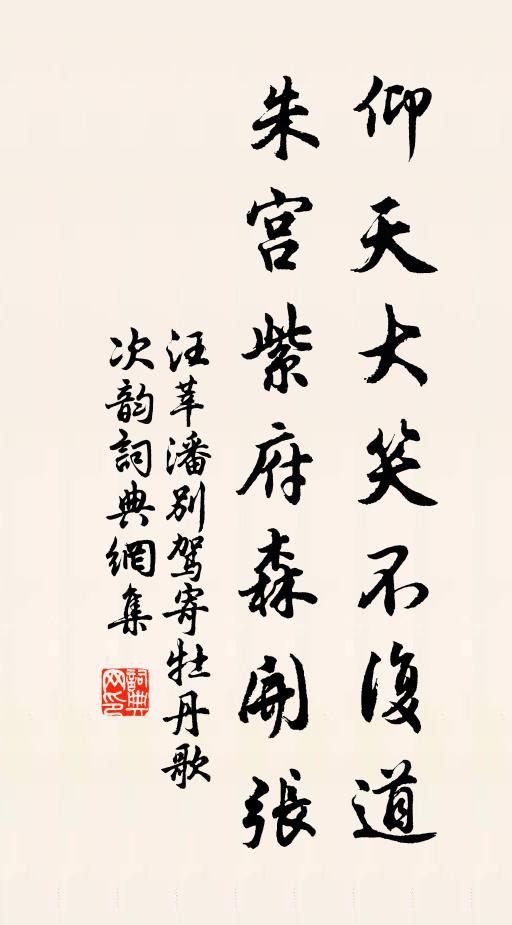 仰天大笑不復道
朱宮紫府森開張
汪莘潘別駕寄牡丹歌
次韵詞典網集
詞典网印